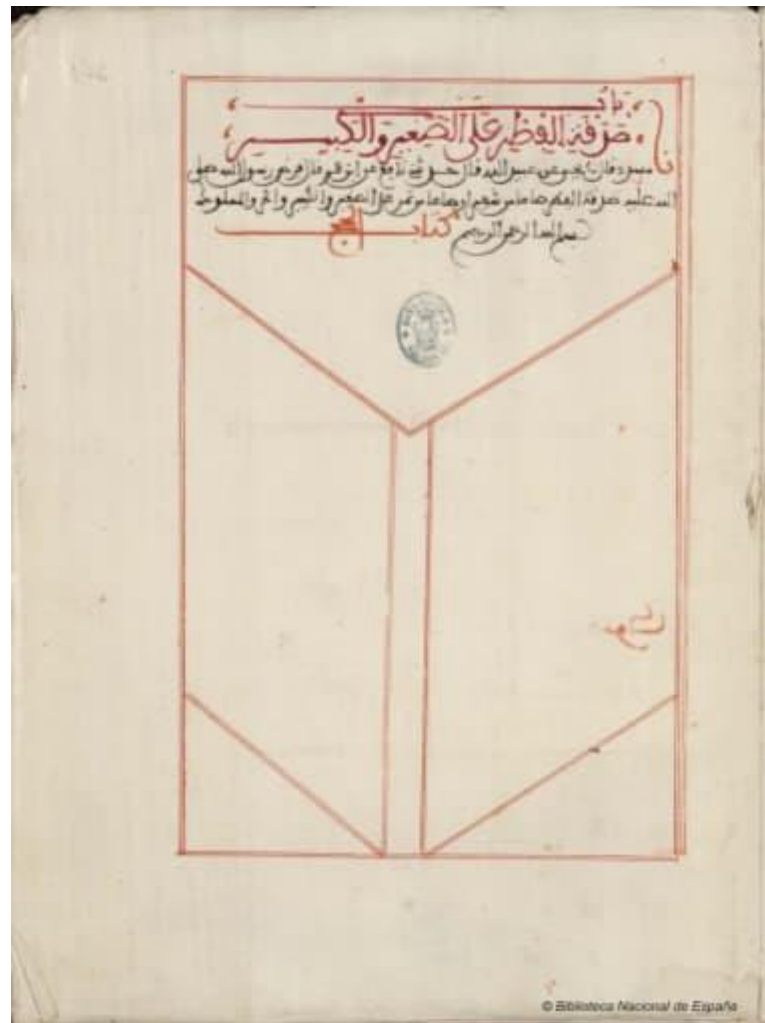 باب
صدقة الفطر على الصغير والكبير
نا
مسدد قال نا يحيى عن عبيد الله قال حدثني نافع عن ابن عمر قال فرض رسول الله صلى
الله عليه صدقة الفطر صاعا من شعير او صاعا من تمر على الصغير والكبير والحر والمملوك
بسم الله الرحمن الرحيم كتاب الحج
© Biblioteca Nacional de España